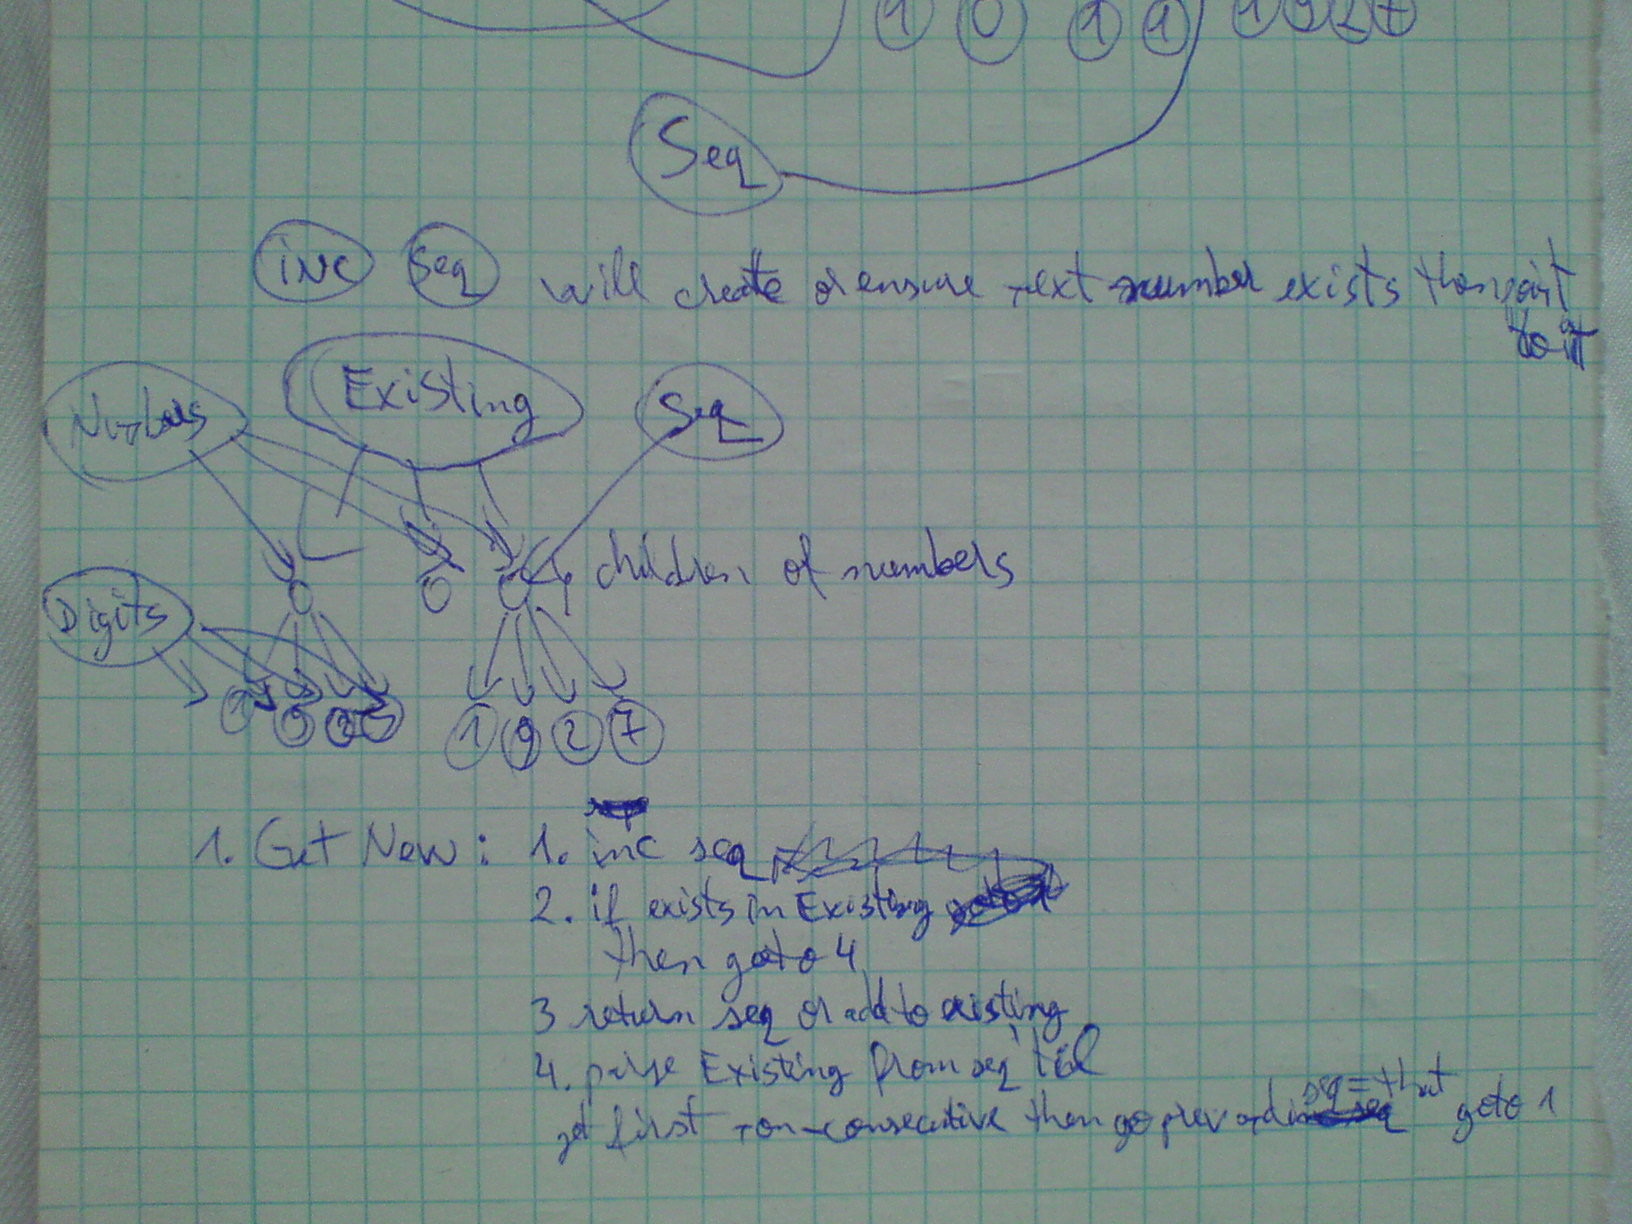 1 0 1 1 1 9 2 7
Seq
inc Seq will create or ensure next number exists then point
to it
Numbers Existing Seq
children of numbers
Digits
1 9 2 7
1. Get New: 1. inc seq
2. if exists in Existing
then goto 4
3 return seq or add to existing
4. parse Existing from seq till
get first non-consecutive then go prev and seq = that goto 1